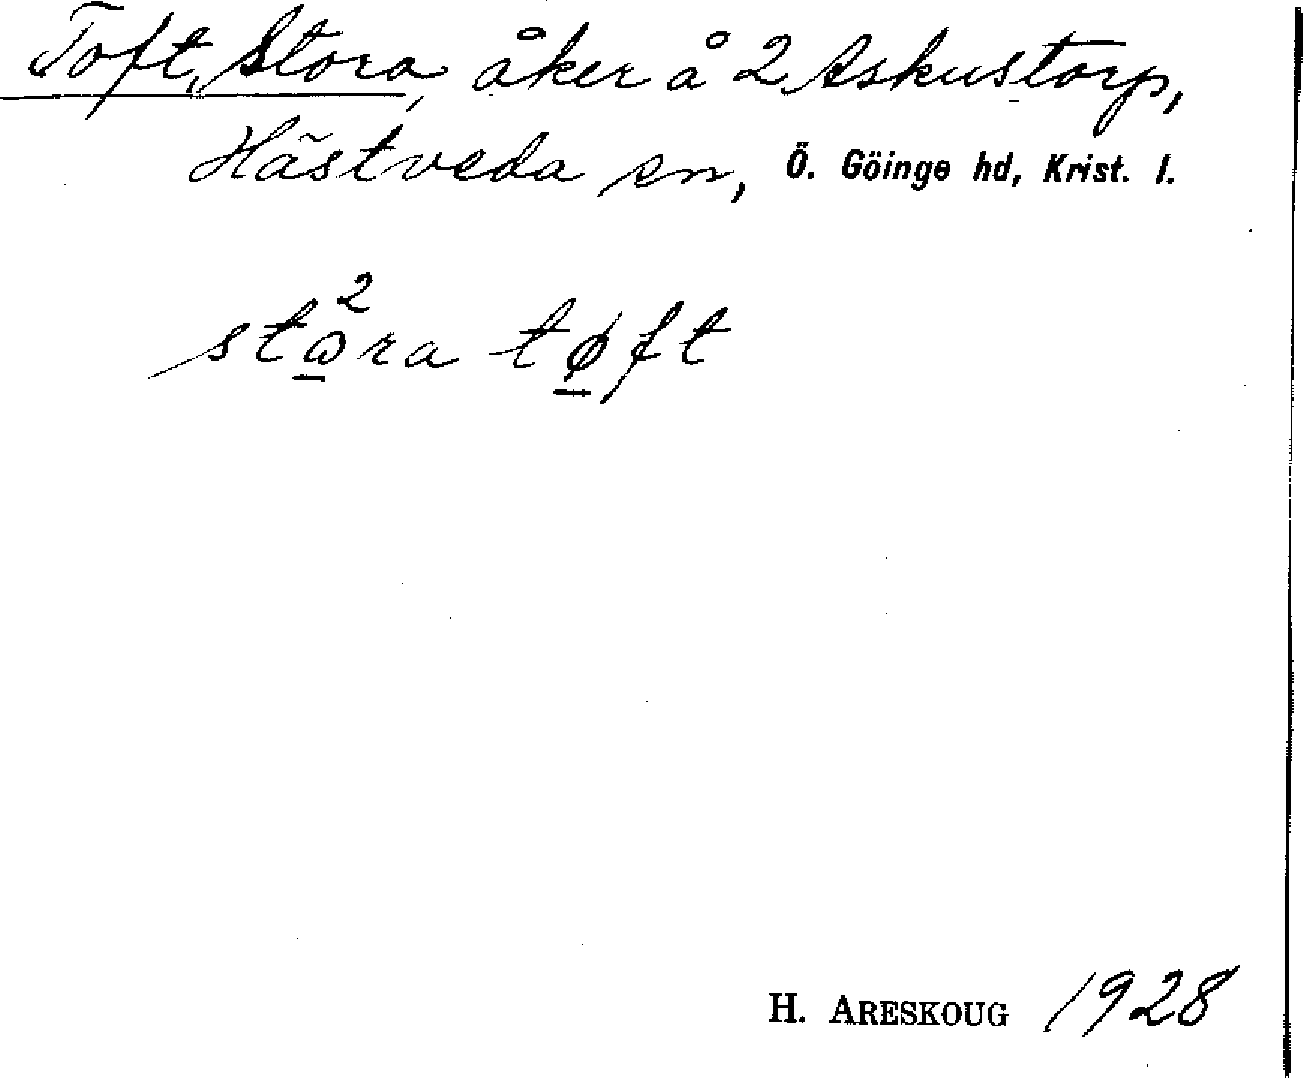 Toft, Stora, åker å 2 Askustorp,
Hästveda sn, Ö. Göinge hd, Krist. l.
2
stꞷra tøft
H. ARESKOUG 1928